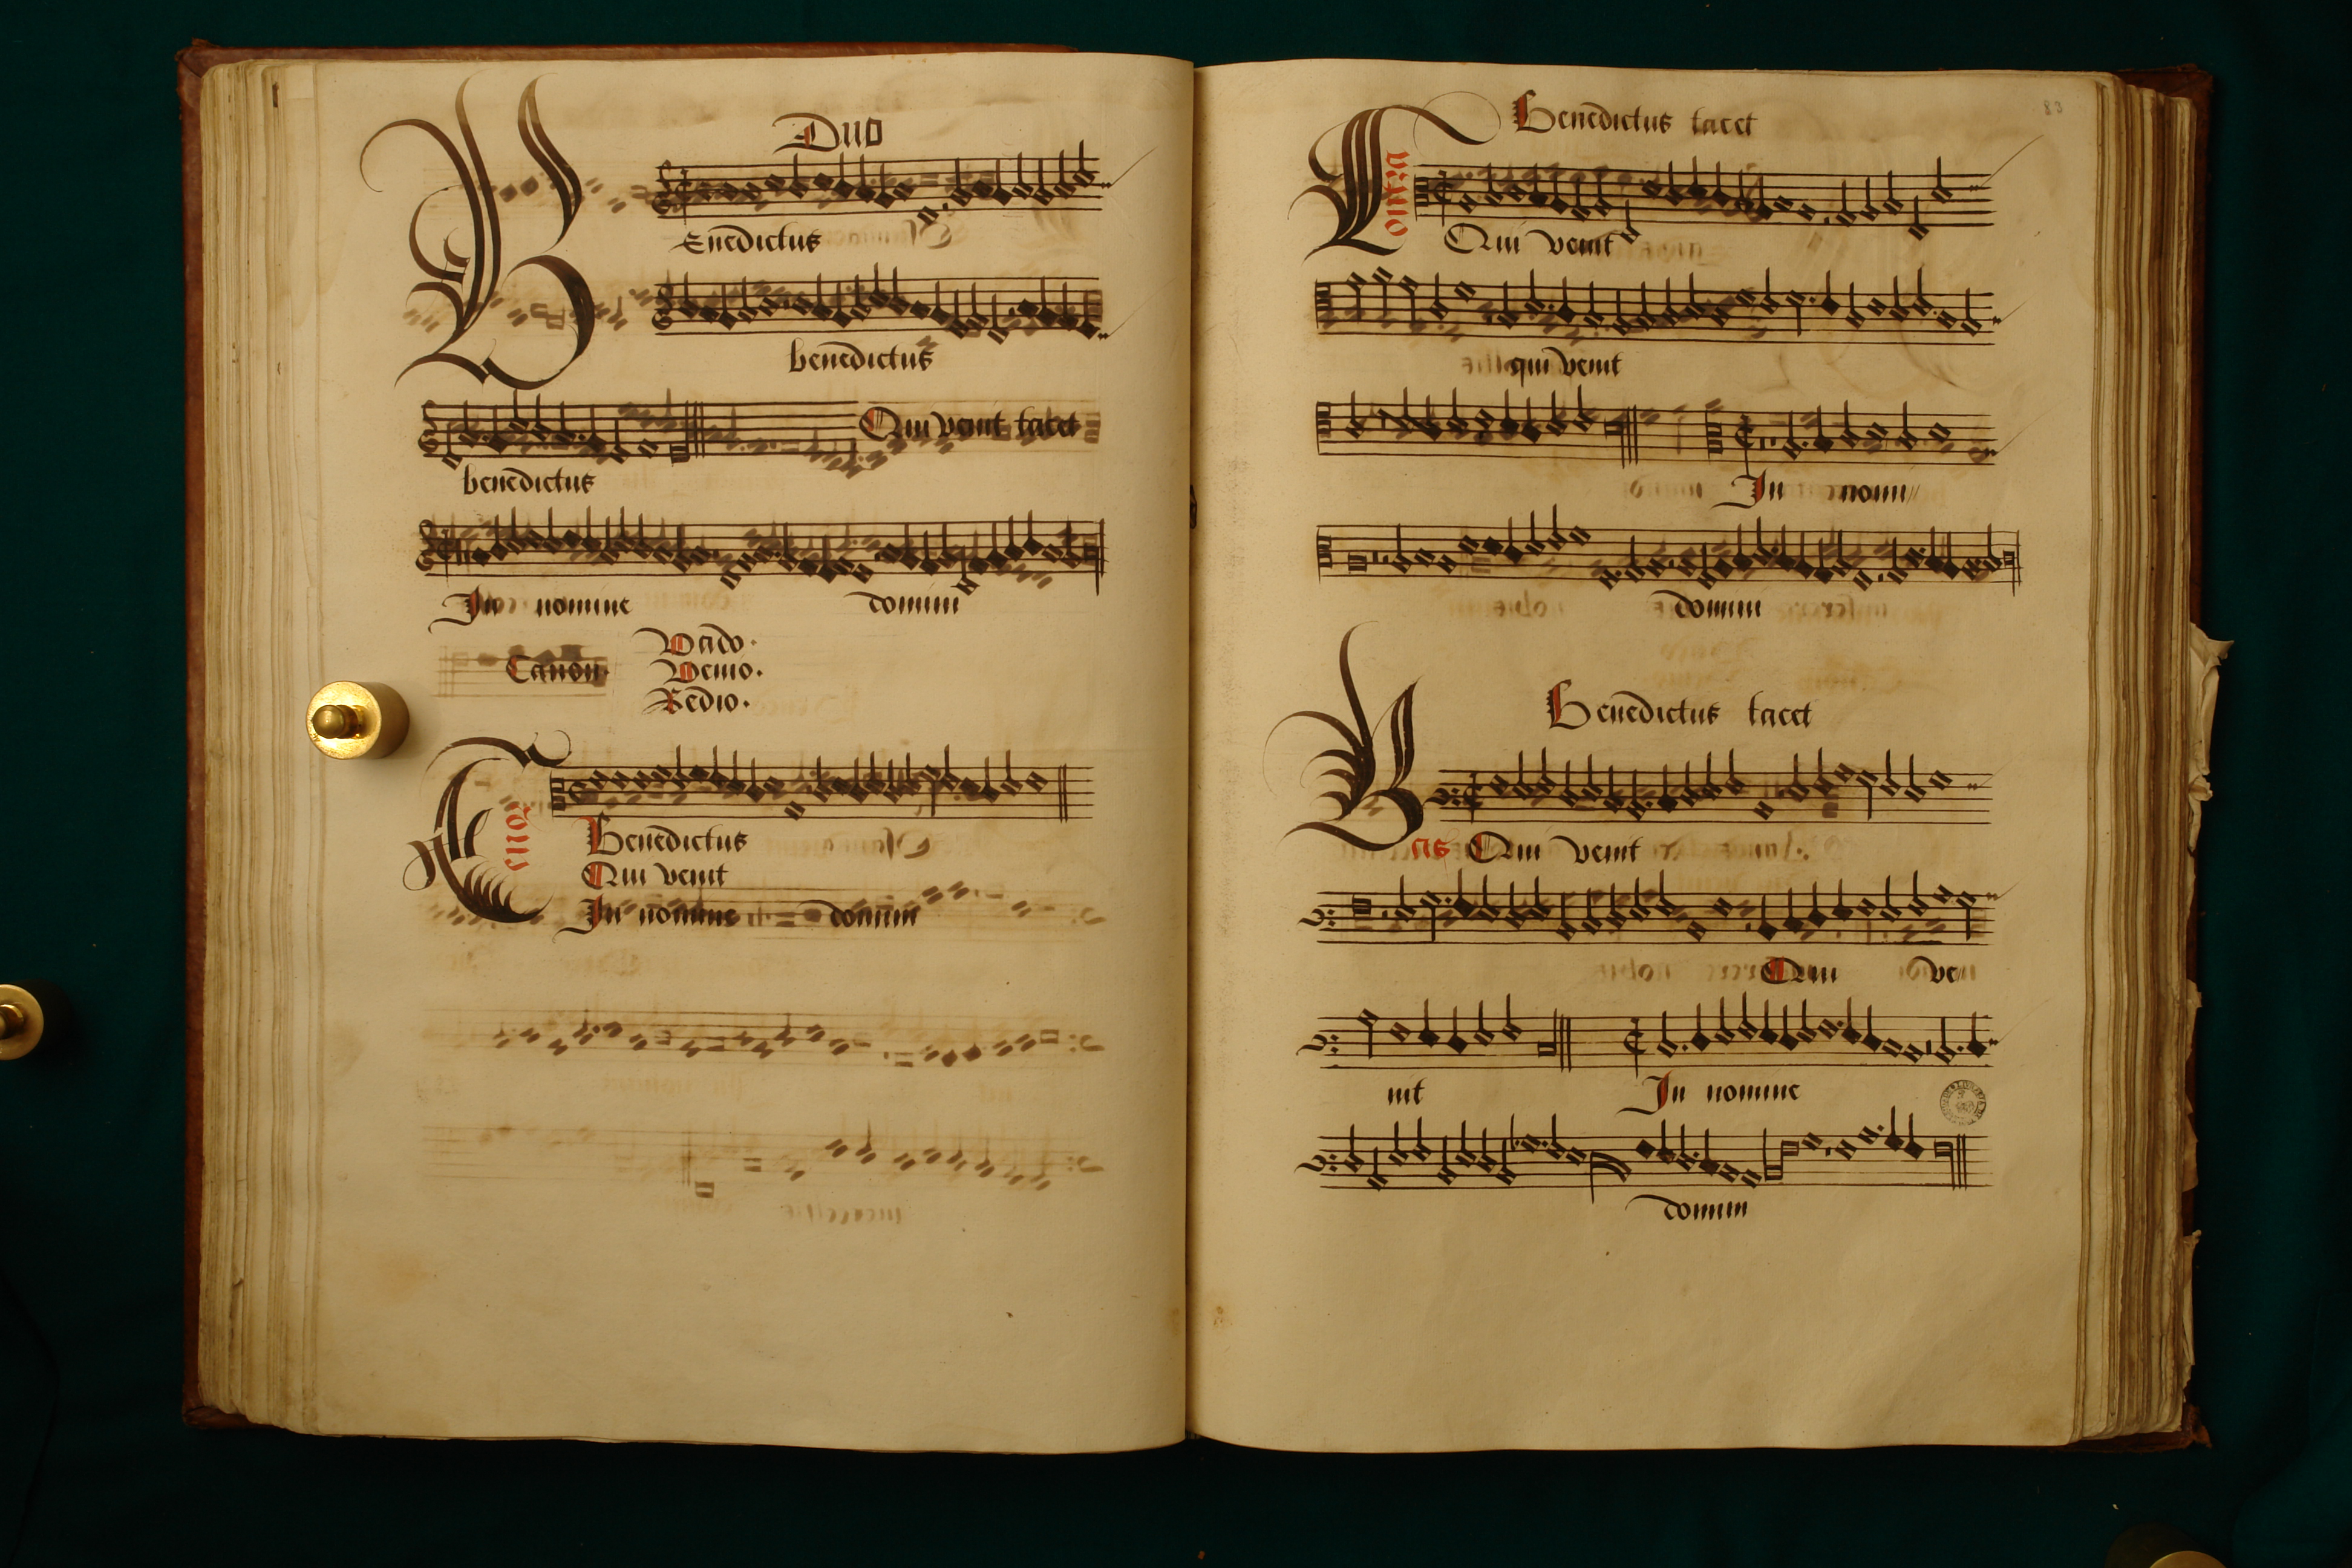 Duo
BEnedictus
benedictus
Qui venit tacet
benedictus
In nomine domini
Canon Vado.
Venio.
Redio.
Tenor
Benedictus
Qui venit
In nomine domini
83
Benedictus tacet
Qui venit
qui venit
In nomi
domini
Benedictus tacet
Bas Qui venit
Qui ve
nit In nomine
domini